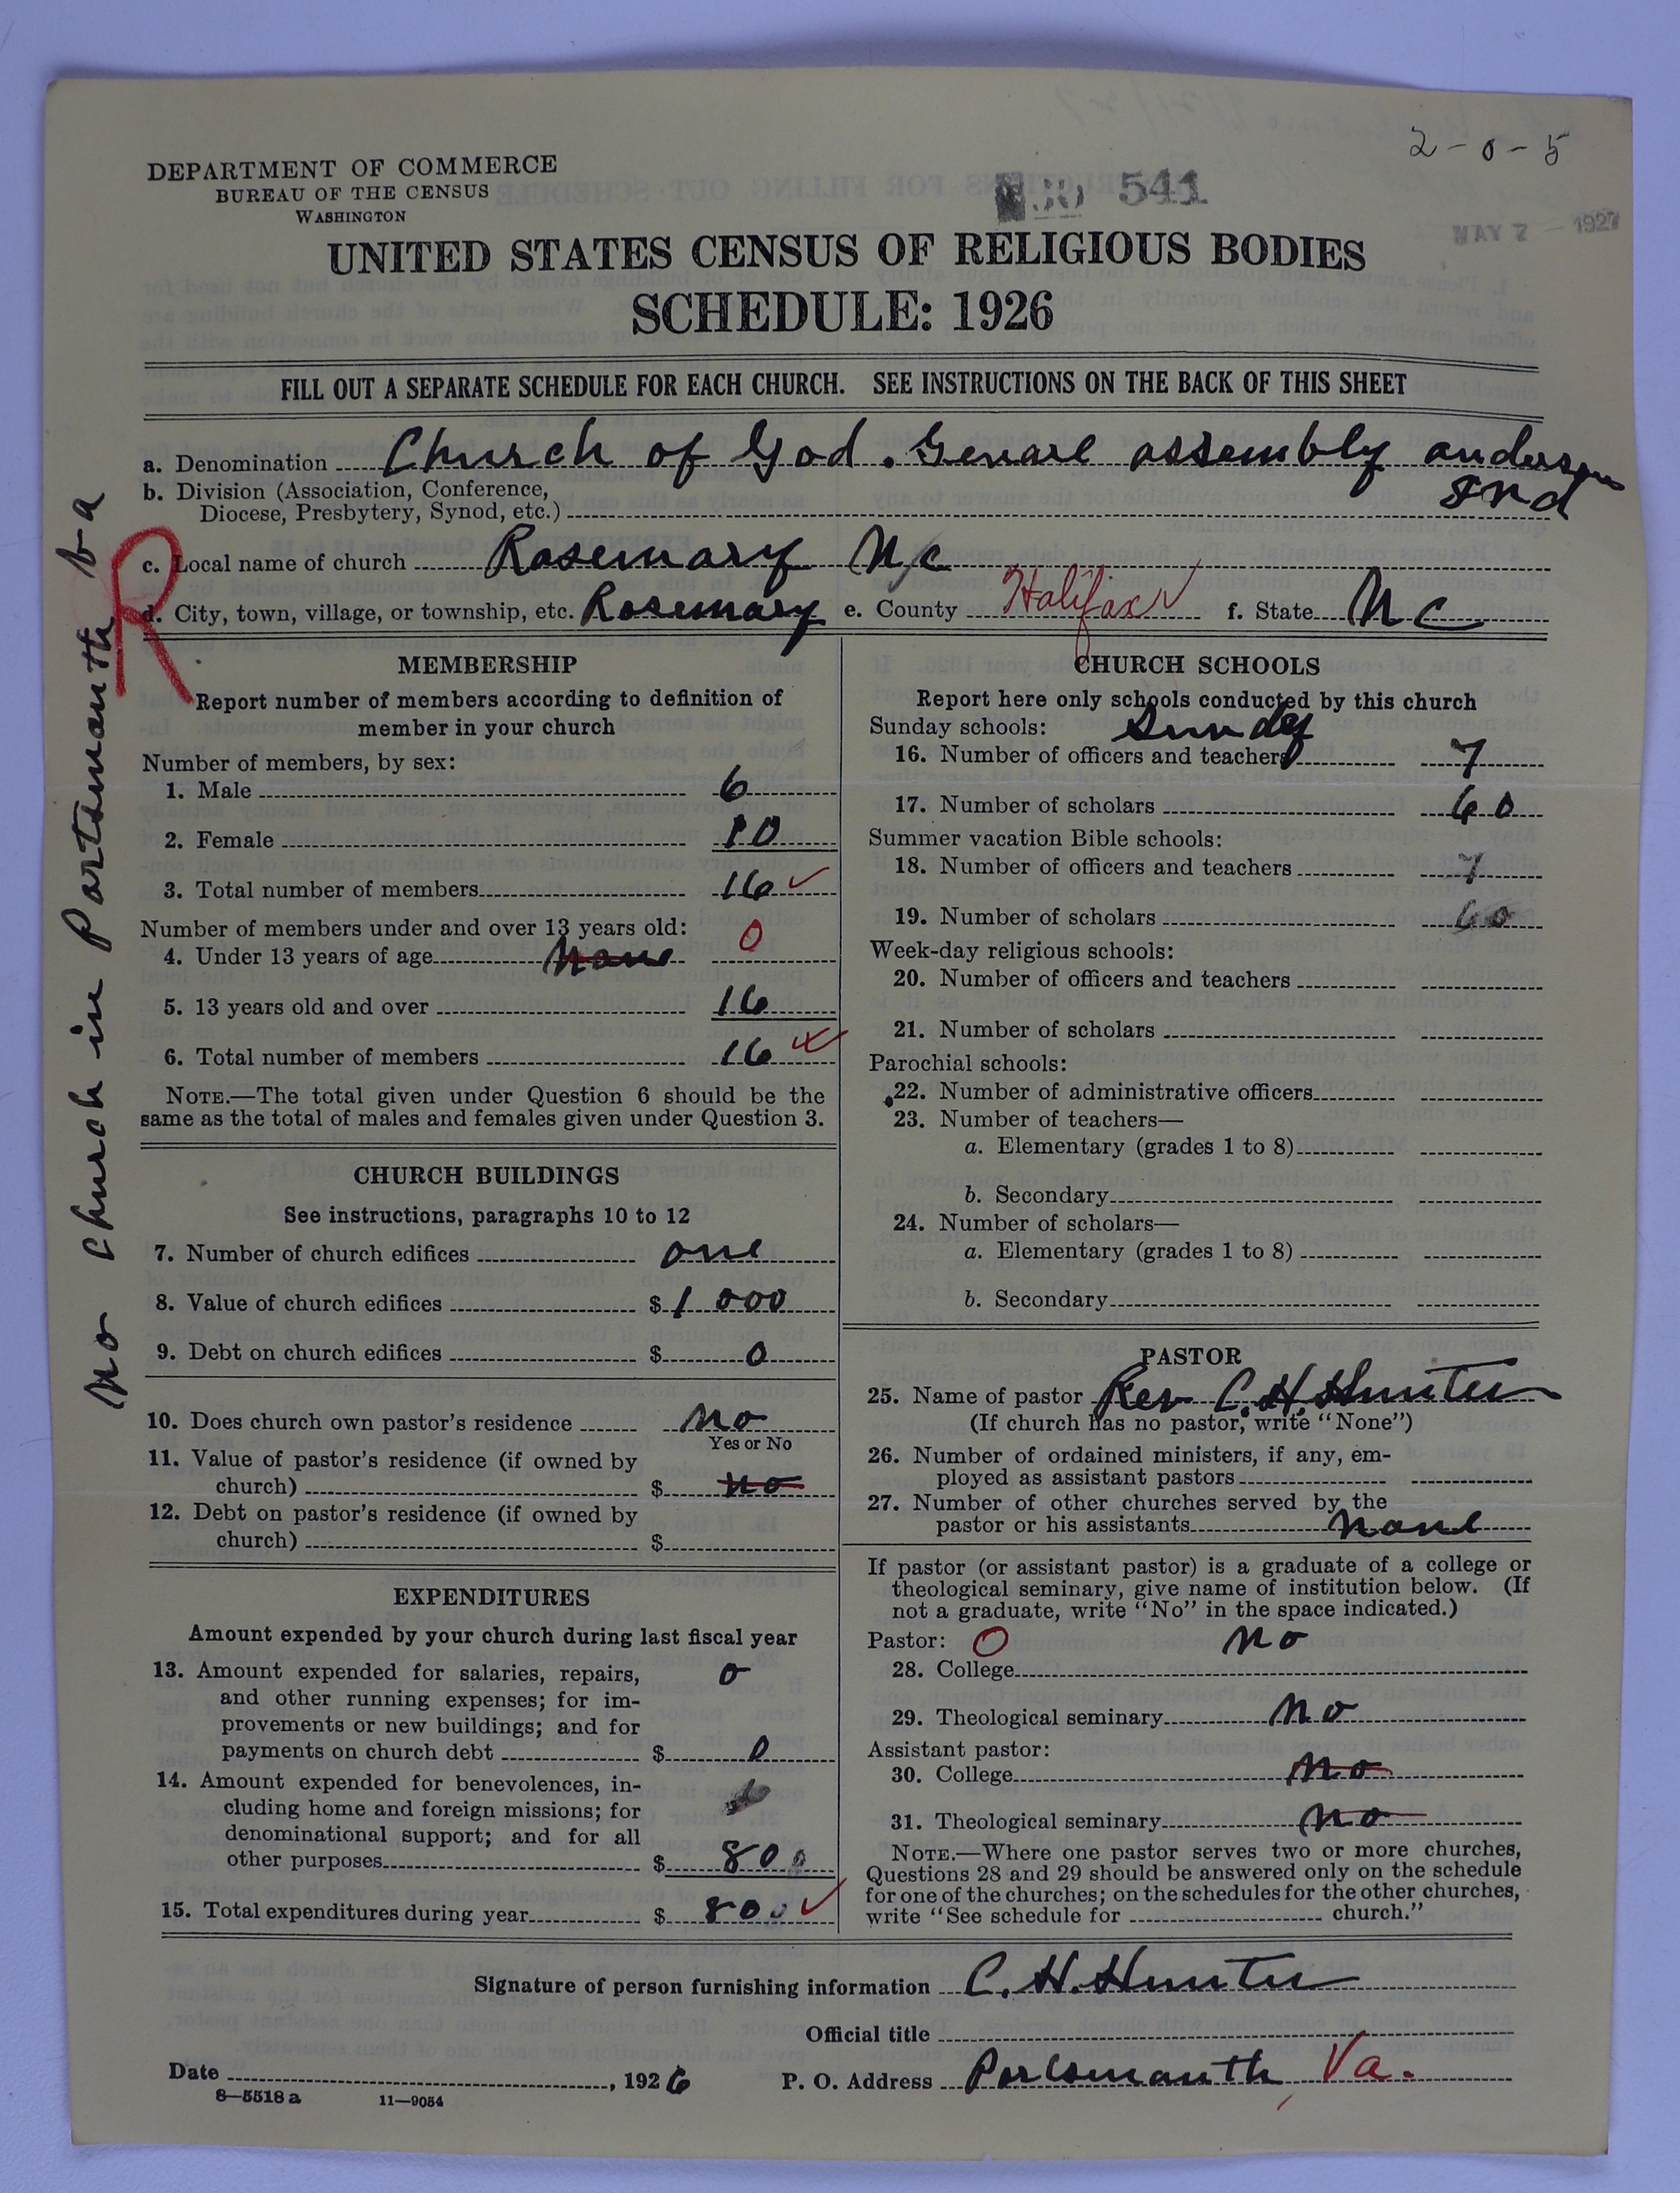 2-0-5
DEPARTMENT OF COMMERCE
BUREAU OF THE CENSUS
WASHINGTON
541
MAY 7 1927
UNITED STATES CENSUS OF RELIGIOUS BODIES
SCHEDULE: 1926
FILL OUT A SEPARATE SCHEDULE FOR EACH CHURCH. SEE INSTRUCTIONS ON THE BACK OF THIS SHEET
a. Denomination Church of God. Genarl assembly anderson
Ind
b. Division (Association, Conference,
Diocese, Presbytery, Synod, etc.)
c. Local name of church Rosemary N/c
d. City, town, village, or township, etc. Rosemary e. County Halifax ✓ f. State N C
R
no church in Portsmouth
MEMBERSHIP
Report number of members according to definition of
member in your church
Number of members, by sex:
1. Male 6
2. Female 10
3. Total number of members 16 ✓
Number of members under and over 13 years old:
4. Under 13 years of age none 0
5. 13 years old and over 16
6. Total number of members 16
NOTE.—The total given under Question 6 should be the
same as the total of males and females given under Question 3.
CHURCH BUILDINGS
See instructions, paragraphs 10 to 12
7. Number of church edifices one
8. Value of church edifices $ 1 000
9. Debt on church edifices $ 0
10. Does church own pastor's residence no
Yes or No
11. Value of pastor's residence (if owned by
church) $ no
12. Debt on pastor's residence (if owned by
church) $
EXPENDITURES
Amount expended by your church during last fiscal year
13. Amount expended for salaries, repairs, 0
and other running expenses; for im-
provements or new buildings; and for
payments on church debt $ 0
14. Amount expended for benevolences, in-
cluding home and foreign missions; for
denominational support; and for all
other purposes $ 80 0
15. Total expenditures during year $ 80 0 ✓
CHURCH SCHOOLS
Report here only schools conducted by this church
Sunday schools: Sunday
16. Number of officers and teachers 7
17. Number of scholars 60
Summer vacation Bible schools:
18. Number of officers and teachers 7
19. Number of scholars 60
Week-day religious schools:
20. Number of officers and teachers
21. Number of scholars
Parochial schools:
22. Number of administrative officers
23. Number of teachers—
a. Elementary (grades 1 to 8)
b. Secondary
24. Number of scholars—
a. Elementary (grades 1 to 8)
b. Secondary
PASTOR
25. Name of pastor Rev C. H Hunter
(If church has no pastor, write "None")
26. Number of ordained ministers, if any, em-
ployed as assistant pastors
27. Number of other churches served by the
pastor or his assistants none
If pastor (or assistant pastor) is a graduate of a college or
theological seminary, give name of institution below. (If
not a graduate, write "No" in the space indicated.)
Pastor: O no
28. College
29. Theological seminary no
Assistant pastor:
30. College no
31. Theological seminary no
NOTE.—Where one pastor serves two or more churches,
Questions 28 and 29 should be answered only on the schedule
for one of the churches; on the schedules for the other churches,
write "See schedule for church."
Signature of person furnishing information C. H. Hunter
Official title
Date , 1926 P. O. Address Portsmouth, Va.
8—5518 a 11—9054